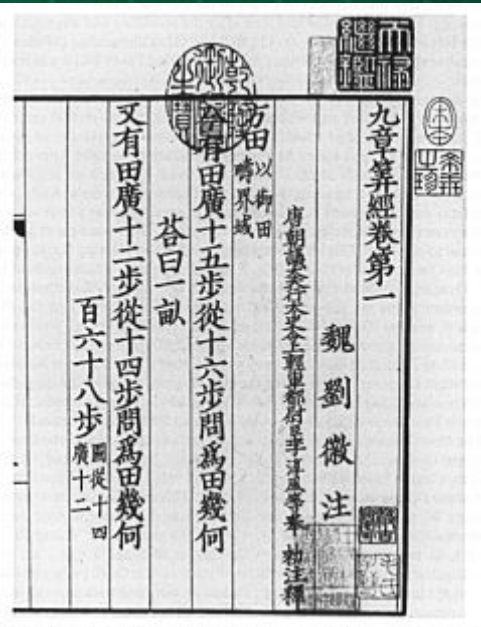 九章筭經卷第一
魏劉徽注
唐朝議大夫行太史令上輕車都尉臣李淳風等奉 敕注釋
方田以御田
疇界域
今有田廣十五步從十六步問爲田幾何
荅曰一畝
又有田廣十二步從十四步問爲田幾何
百六十八步圖從十四
廣十二